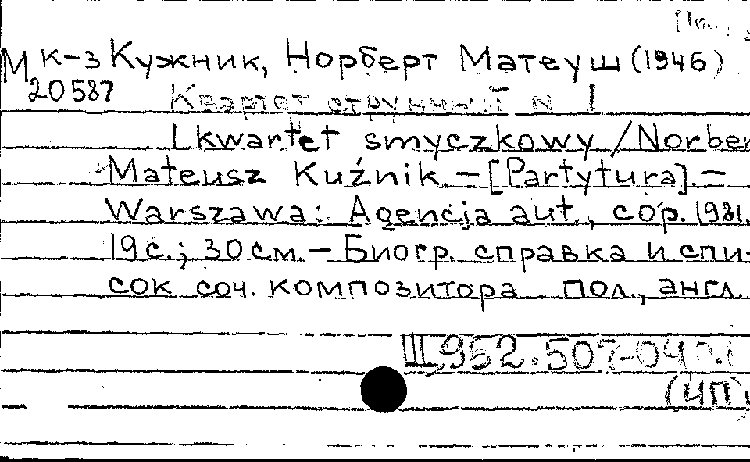 М к-з Кужник, Норберт Матеуш (1946)
20587 Квартет струнный N 1
I kwartet smyczkowy / Norber
Mateusz Kuźnik. – [Partytura]. –
Warszawa: Agencja aut., cop. 1981.
19 с.; 30 см. – Биогр. справка и спи-
сок соч. композитора пол., англ.
Щ952.507-04
(ЧП)